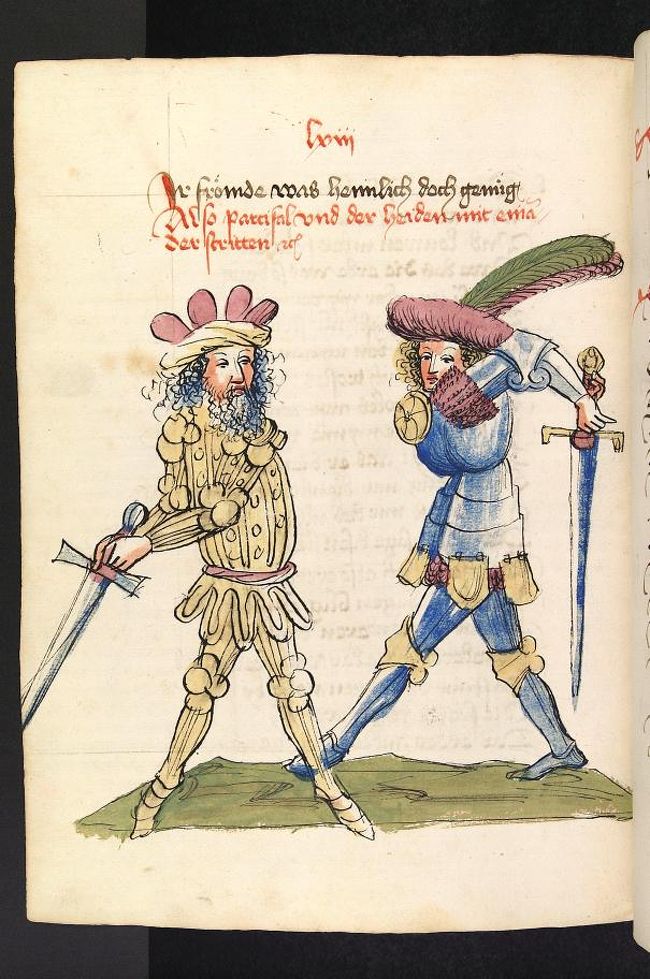 lxiii
Ir frömde was heinlich doch genuͦg
Also partcifal vnd der heiden mit einā
der stritten ꝛc